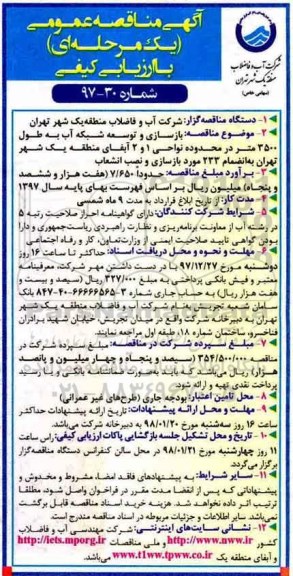 آگهی مناقصه عمومی
(یک مرحله‌ای)
با ارزیابی کیفی
شماره ۳۰-۹۷
شرکت آب و فاضلاب
منطقه یک شهر تهران
(سهامی خاص)
۱- دستگاه مناقصه‌گزار: شرکت آب و فاضلاب منطقه‌یک شهر تهران
۲- موضوع مناقصه: بازسازی و توسعه شبکه آب به طول
۳۵۰۰ متر در محدوده نواحی ۱ و ۲ آبفای منطقه یک شهر
تهران به‌انضمام ۲۳۳ مورد بازسازی و نصب انشعاب
۳- برآورد مبلغ مناقصه: حدودا ۷/۶۵۰ (هفت هزار و ششصد
و پنجاه) میلیون ریال بر اساس فهرست بهای پایه سال ۱۳۹۷
۴- مدت کار: از تاریخ ابلاغ قرارداد به مدت ۹ ماه شمسی
۵- شرایط شرکت کنندگان: دارای گواهینامه احراز صلاحیت رتبه ۵
در رشته آب از معاونت برنامه‌ریزی و نظارت راهبردی ریاست‌جمهوری و دارا
بودن گواهی تایید صلاحیت ایمنی از وزارت تعاون، کار و رفاه اجتماعی
۶- مهلت و نحوه و محل دریافت اسناد: حداکثر تا ساعت ۱۶ روز
دوشنبه مورخ ۹۷/۱۲/۲۷ با در دست داشتن مهر شرکت، معرفینامه
معتبر و فیش بانکی پرداختی به مبلغ ۳۲۷/۰۰۰ ریال (سیصد و بیست و
هفت هزار ریال) به حساب جاری شماره
بانک شعبه تجریش به‌نام شرکت آب و فاضلاب منطقه یک شهر
تهران به دفتر شرکت واقع در میدان تجریش، خیابان شهید برادران
فناخسرو، ساختمان شماره ۱۸، طبقه اول مراجعه نمایند.
۷- مبلغ سپرده شرکت در مناقصه: مبلغ سپرده شرکت در
مناقصه ۳۵۴/۵۰۰/۰۰۰ (سیصد و پنجاه و چهار میلیون و پانصد
هزار) ریال می‌باشد که باید به‌صورت ضمانتنامه بانکی و یا رسید
پرداخت نقدی تهیه و ارائه شود.
۸- محل تامین اعتبار: بودجه جاری (طرح‌های غیر عمرانی)
۹- مهلت و محل ارائه پیشنهادات: تاریخ ارائه پیشنهادات حداکثر
ساعت ۱۶ روز سه‌شنبه مورخ ۹۸/۰۱/۲۰ به دبیرخانه شرکت می‌باشد.
۱۰- تاریخ و محل تشکیل جلسه بازگشایی پاکات ارزیابی کیفی: راس ساعت
۱۱ روز چهارشنبه مورخ ۹۸/۰۱/۲۱ در محل سالن کنفرانس دستگاه مناقصه‌گزار
برگزار می‌گردد.
۱۱- سایر شرایط: به پیشنهادهای فاقد امضا، مشروط و مخدوش و
پیشنهاداتی که پس از انقضا مدت مقرر در فراخوان واصل شود، مطلقا
ترتیب اثر داده نخواهد شد. هزینه خرید اسناد مناقصه قابل برگشت
نمی‌باشد. سایر اطلاعات و جزئیات مربوطه در اسناد مناقصه مندرج است.
۱۲- نشانی سایت‌های اینترنتی: شرکت مهندسی آب و فاضلاب
کشور http://www.nww.ir و ملی مناقصات http://iets.mporg.ir
و آبفای منطقه یک www.t1ww.tpww.co.ir می‌باشد.